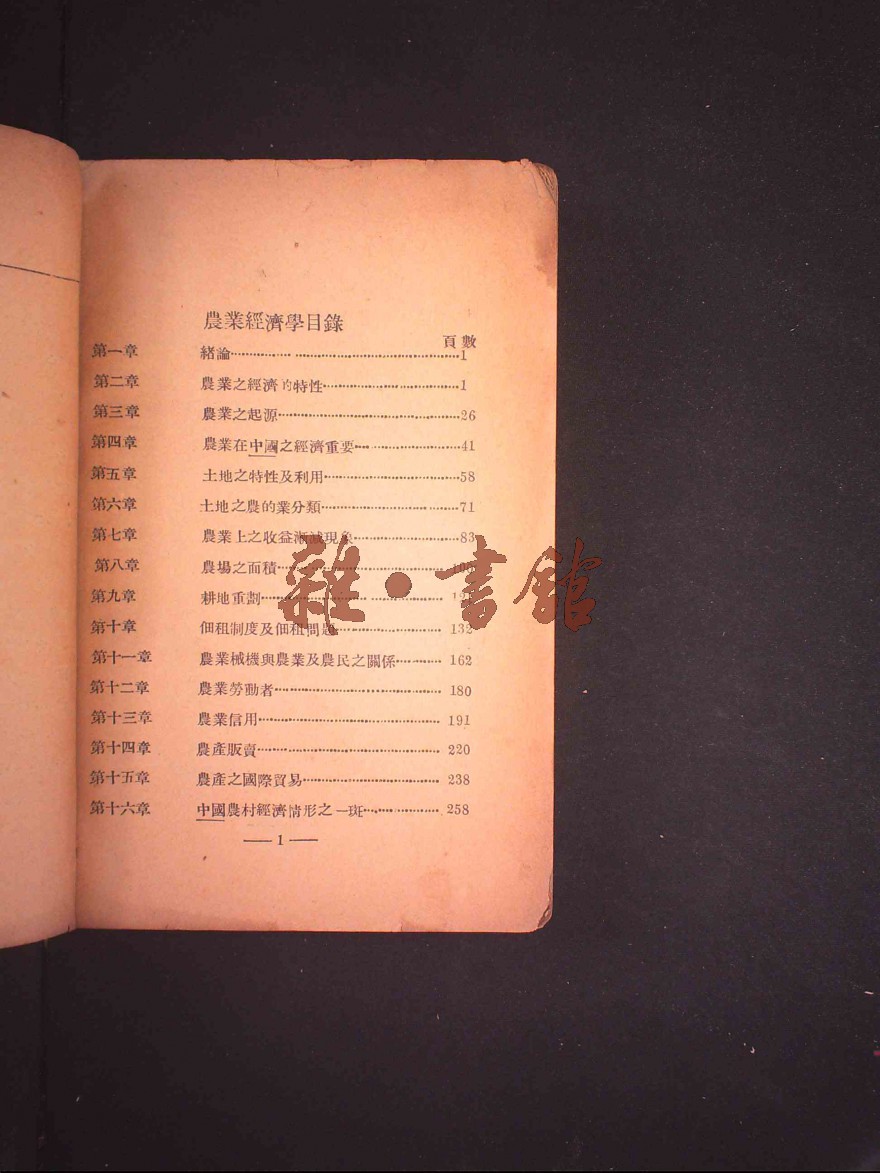 農業經濟學目錄
頁數
第一章 緒論……1
第二章 農業之經濟的特性……1
第三章 農業之起源……26
第四章 農業在中國之經濟重要……41
第五章 土地之特性及利用……58
第六章 土地之農的業分類……71
第七章 農業上之收益漸減現象……83
第八章 農場之面積……
第九章 耕地重劃……
第十章 佃租制度及佃租問題……132
第十一章 農業械機與農業及農民之關係……162
第十二章 農業勞動者……180
第十三章 農業信用……191
第十四章 農產販賣……220
第十五章 農產之國際貿易……238
第十六章 中國農村經濟情形之一斑……258
—1—
雜·書館